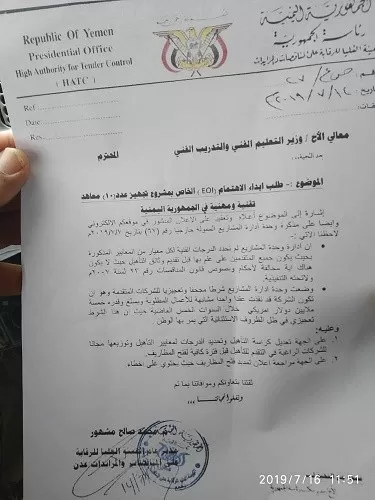 Republic Of Yemen
Presidential Office
High Authority for Tender Control
( HATC )
الجمهورية اليمنية
رئاسة الجمهورية
الهيئة العليا للرقابة على المناقصات والمزايدات
Ref
Date
Res
معالي الأخ / وزير التعليم الفني والتدريب الفني
المحترم
بعد التحية..
الموضوع :- طلب ابداء الاهتمام (EOI) الخاص بمشروع تجهيز عدد (10) معاهد
تقنية ومهنية في الجمهورية اليمنية
إشارة إلى الموضوع أعلاه وتعقيب على الاعلان المنشور في موقعكم الإلكتروني
وايضا على مذكرة وحدة ادارة المشاريع الممولة خارجيا رقم (٦٢) بتاريخ
لاحظنا الاتي :
ان ادارة وحدة المشاريع لم تحدد الدرجات الفنية لكل معيار من المعايير المذكورة
بحيث يكون جميع المتقدمين على علم بها قبل تقديم وثائق التأهيل حيث لا يكون
هناك اية مخالفة لأحكام ونصوص قانون المناقصات رقم ٢٣ لسنة ٢٠٠٧م
ولائحته التنفيذية.
وضعت وحدة ادارة المشاريع شرطا مجحفا وتعجيزيا للشركات المتقدمة وهو ان
تكون الشركة قد نفذت عقدا واحدا مشابها للأعمال المطلوبة وبمبلغ وقدره خمسة
ملايين دولار امريكي خلال السنوات الخمس الماضية حيث ان هذا الشرط
تعجيزي في ظل الظروف الاستثنائية التي يمر بها الوطن
وعليه:
١- على الجهة تعديل كراسة التأهيل وتحديد الدرجات لمعايير التأهيل وتوزيعها مجانا
للشركات الراغبة في التقدم للتأهيل قبل فترة كافية لفتح المظاريف.
٢- على الجهة مراجعة اعلان تمديد فتح المظاريف حيث يحتوي على اخطاء
ثقتنا بتعاونكم وموافاتنا بما تم
وتقبلوا تحياتنا،،،
محمد صالح مشهور
الهيئة العليا للرقابة
على المناقصات والمزايدات عدن
2019/7/16 11:51